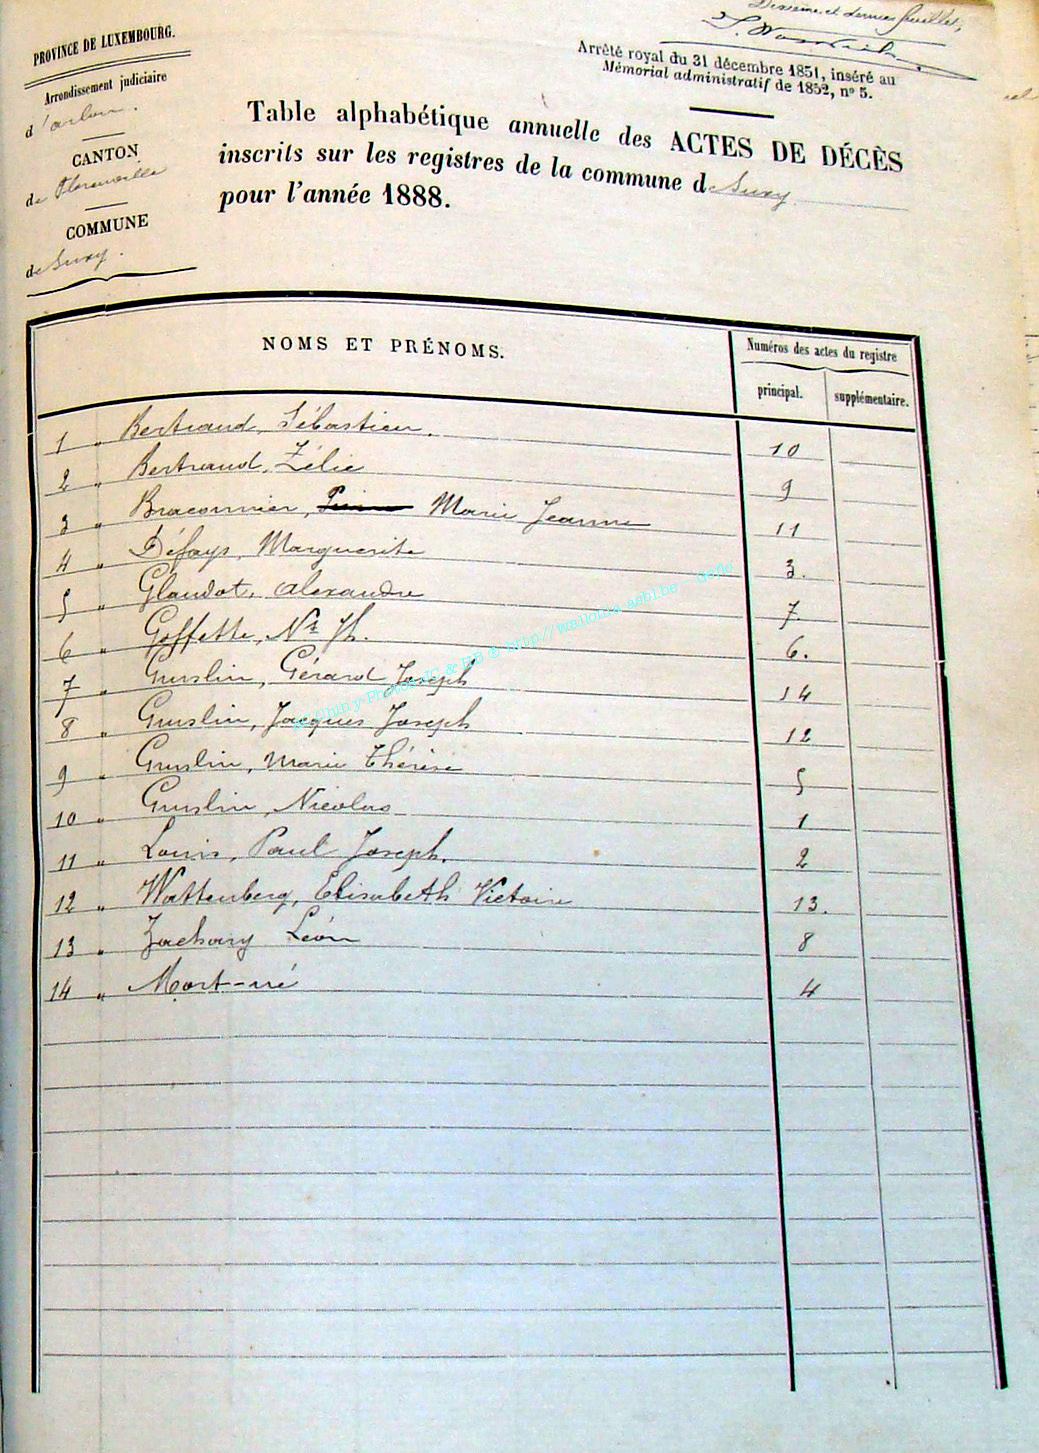 Deuxième et dernier feuillet,
PROVINCE DE LUXEMBOURG.
Arrondissement judiciaire
d'arlon.
CANTON
de Florenville
COMMUNE
de Suxy.
Arrêté royal du 31 décembre 1851, inséré au
Mémorial administratif de 1852, nº 5.
Table alphabétique annuelle des ACTES DE DÉCÈS
inscrits sur les registres de la commune de Suxy
pour l'année 1888.
NOMS ET PRÉNOMS.
Numéros des actes du registre
principal. supplémentaire.
1 " Bertrand, Sébastien. 10
2 " Bertrand, Zélie 9
3 " Braconnier, Marie Jeanne 11
4 " Défays, Marguerite 3.
5 " Glaudot, Alexandre 7.
6 " Goffette, Ns Jh. 6.
7 " Guislin, Gérard Joseph 14
8 " Guislin, Jacques Joseph 12
9 " Guislin, Marie Thérèse 5
10 " Guislin, Nicolas 1
11 " Louis, Paul Joseph. 2
12 " Wattenberg, Elisabeth Victoire 13.
13 " Zachary Léon 8
14 " Mort-né 4